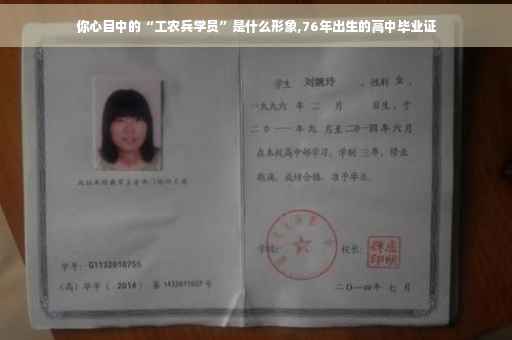 你心目中的“工农兵学员”是什么形象,76年出生的高中毕业证
学生 刘婉玲 ，性别 女 ，
一九九六 年 二 月 日生，于
二0一一年九 月至二0一四年 六月
在本校高中部学习，学制 三年，修业
期满，成绩合格，准予毕业。
学校： 校长：
二〇一四年 七 月
学号： G1132010755
（高）毕字（ 2014 ）第 1432011027 号